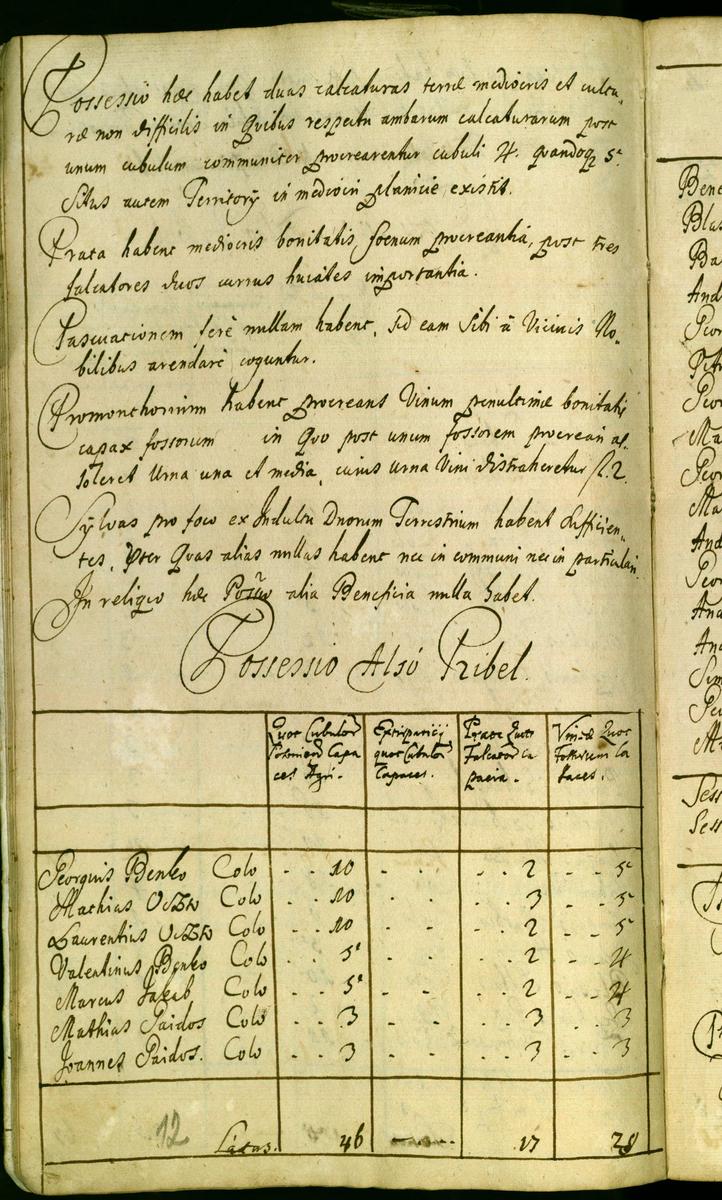 Possessio hæc habet duas calcaturas terræ mediocris et cultu,
ræ non difficilis in Qvibus respectu ambarum calcaturarum post
unum cubulum communiter procrearentur cubuli 4. quandoq 5.
Situs autem Territorÿ in mediocri planicie existit.
Prata habent mediocris bonitatis, foenum procreantia, post tres
falcatores duos currus importantia.
Pascuationem ferè nullam habent, sed eam Sibi à Vicinis No,
bilibus arendare coguntur.
Promonthorium habent procreans Vinum penultimæ bonitatis
capax fossorum in Qvo post unum fossorem procreari as,
soleret Urna una et media, cuius Urna Vini distraheretur fl. 2.
Sÿlvas pro foco ex Indultu Dnorum Terrestrium habent sufficien,
tes, pter Qvas alias nullas habent nec in communi nec in particulari.
In reliqvo hæc Possio alia Beneficia nulla habet.
Possessio Alsó Pribel.
Quot Cubulor Posonien Capa ces Agri.
Extirpaticÿ quot Cubulor Capaces.
Prata Quot Falcator ca pacia.
Vineæ Quot Fossorum Ca paces.
Georgius Benko Colo - - 10 - - - - 2 - - 5
Mathias Colo - - 10 - - - - 3 - - 5
Laurentius Colo - - 10 - - - - 2 - - 5
Valentinus Benko Colo - - 5 - - - - 2 - - 4
Marcus Jakab Colo - - 5 - - - - 2 - - 4
Mathias Paidos Colo - - 3 - - - - 3 - - 3
Joannes Paidos. Colo - - 3 - - - - 3 - - 3
12 Latus. 46 17 28